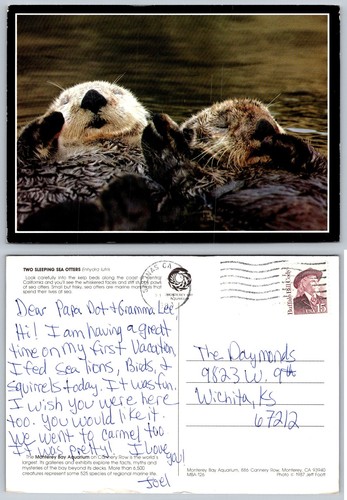 TWO SLEEPING SEA OTTERS (Enhydra lutris)
Look carefully into the kelp beds along the coast of
California and you'll see the whiskered faces and stiff
of sea otters. Small but frisky, sea otters are marine mammals that
spend their lives at sea.
Dear Papa Dot & Gramma Lee
Hi! I am having a great
time on my first Vacation
I fed sea lions, Birds, &
squirrels today. It was fun.
I wish you were here
too. You would like it.
We went to carmel too
It was pretty. I love you!
Joel
Monterey Bay Aquarium on Cannery Row is the world's
largest. Its galleries and exhibits explore the facts, myths and
mysteries of the bay beyond its decks. More than 6,500
creatures represent some 525 species of regional marine life.
CA
AQUARIUM
Buffalo Bill Cody
15
USA
The Daymonds
9823 W. 9th
Wichita, Ks
67212
Monterey Bay Aquarium, 886 Cannery Row, Monterey, CA 93940
Photo © 1987 Jeff Foott